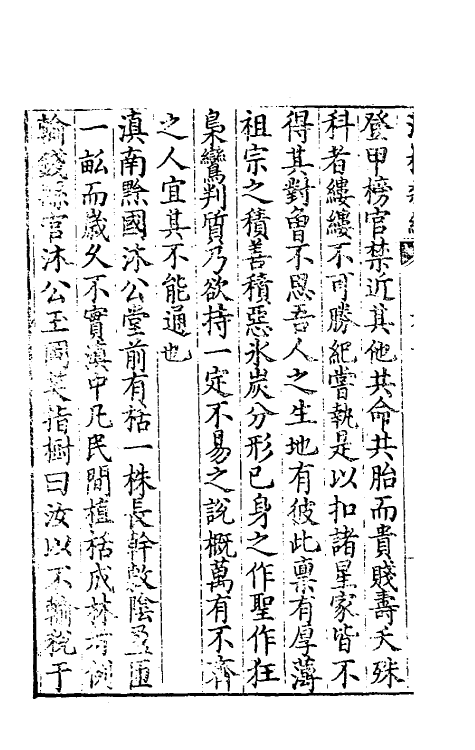 登甲榜官禁近其他共命共胎而貴賤壽夭殊
科者縷縷不可勝紀嘗執是以扣諸星家皆不
得其對曾不思吾人之生地有彼此稟有厚薄
祖宗之積善積惡氷炭分形己身之作聖作狂
梟鸞判質乃欲持一定不易之說概萬有不齊
之人宜其不能通也
滇南黔國沐公堂前有栝一株長幹敷陰盈匝
一畝而歲久不實滇中凡民間植栝成林有例
輸錢縣官沐公王國英指樹曰汝以不輸稅于